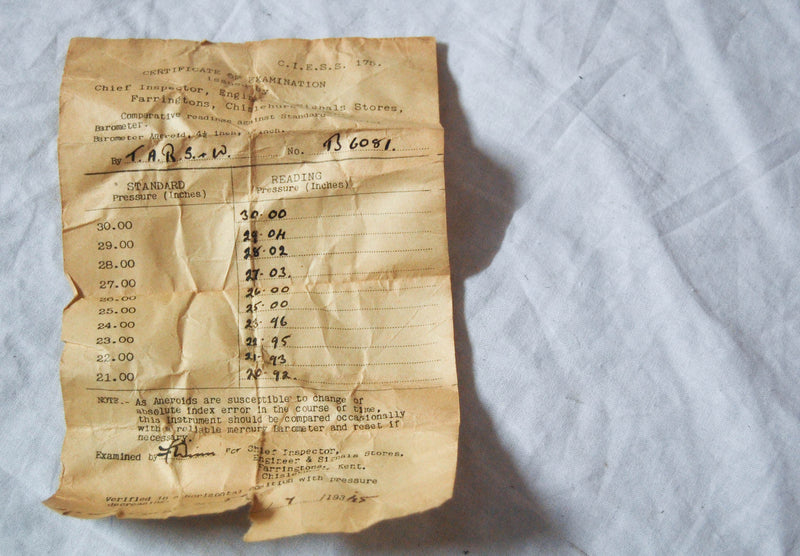 C.I.E.S.S. 175.
CERTIFICATE OF EXAMINATION
issued by
Chief Inspector,
Farringtons,
Stores,
Comparative readings against Standard
Barometer.
Barometer Aneroid, 4½ inch,
By T. A. R. S. & W. No. B 6081.
STANDARD READING
Pressure (Inches) Pressure (Inches)
30.00 30.00
29.00 29.04
28.00 28.02
27.00 27.03.
26.00 26.00
25.00 25.00
24.00 23.96
23.00 22.95
22.00 21.93
21.00 20.92.
NOTE.- As Aneroids are susceptible to change of
absolute index error in the course of time,
this instrument should be compared occasionally
with a reliable mercury Barometer and reset if
necessary.
Examined by for Chief Inspector,
Engineer & Signals Stores.
Farringtons, Kent.
with pressure
Verified in a horizontal position
decreasing
7 /193